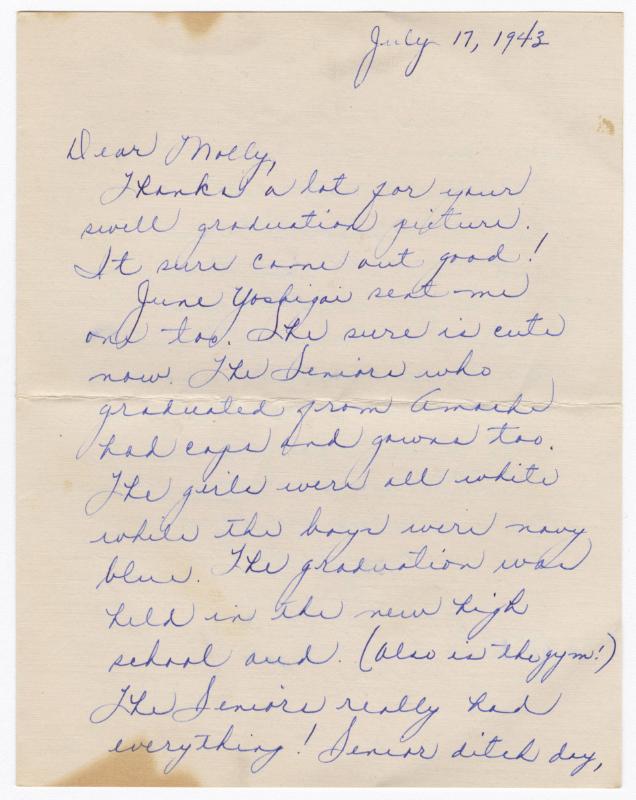 July 17, 1943
Dear Molly,
Thanks a lot for your
swell graduation picture.
It sure came out good!
June Yoshigai sent me
one too. She sure is cute
now. The Seniors who
graduated from Amache
had caps and gowns too.
The girls were all white
while the boys were navy
blue. The graduation was
held in the new high
school aud. (Also is the gym!)
The Seniors really had
everything! Senior ditch day,